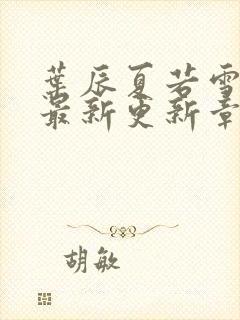 葉辰夏若雪
最新更新章
胡敏